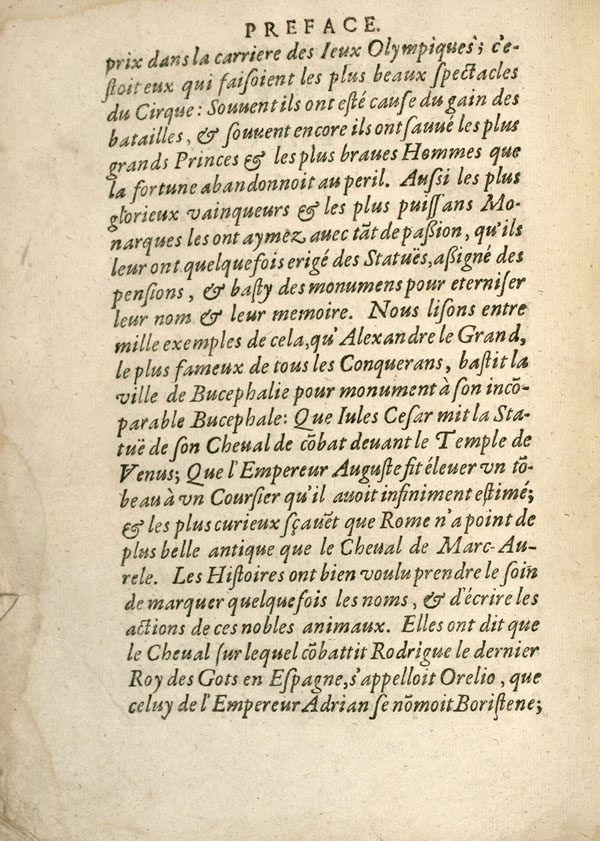 PREFACE.
prix dans la carriere des Ieux Olympiques; c'e-
ſtoit eux qui faiſoient les plus beaux ſpectacles
du Cirque: Souuent ils ont eſté cauſe du gain des
batailles, & ſouuent encore ils ont ſauué les plus
grands Princes & les plus braues Hommes que
la fortune abandonnoit au peril. Auſſi les plus
glorieux vainqueurs & les plus puiſſans Mo-
narques les ont aymez auec tãt de paſſion, qu'ils
leur ont quelquefois erigé des Statuës, aſſigné des
penſions, & baſty des monumens pour eterniſer
leur nom & leur memoire. Nous liſons entre
mille exemples de cela, qu'Alexandre le Grand,
le plus fameux de tous les Conquerans, baſtit la
ville de Bucephalie pour monument à ſon incõ-
parable Bucephale: Que Iules Ceſar mit la Sta-
tuë de ſon Cheual de cõbat deuant le Temple de
Venus; Que l'Empereur Auguſte fit éleuer vn tõ-
beau à vn Courſier qu'il auoit infiniment eſtimé;
& les plus curieux ſçauẽt que Rome n'a point de
plus belle antique que le Cheual de Marc-Au-
rele. Les Hiſtoires ont bien voulu prendre le ſoin
de marquer quelquefois les noms, & d'écrire les
actions de ces nobles animaux. Elles ont dit que
le Cheual ſur lequel cõbattit Rodrigue le dernier
Roy des Gots en Eſpagne, s'appelloit Orelio, que
celuy de l'Empereur Adrian ſe nõmoit Boriſtene;